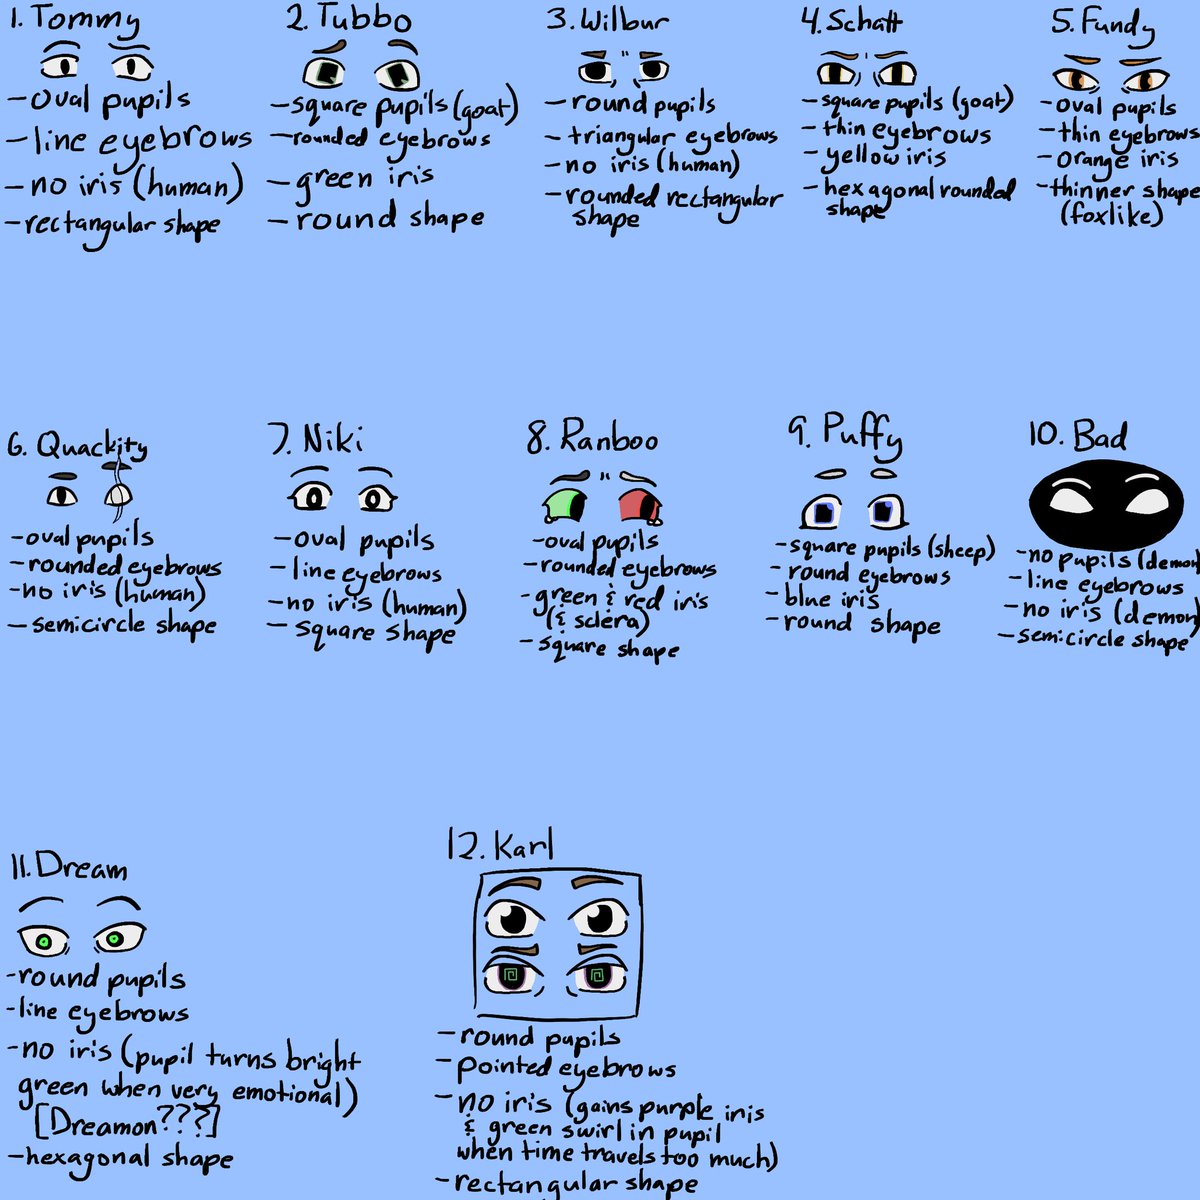 1. Tommy
- oval pupils
- line eyebrows
- no iris (human)
- rectangular shape
2. Tubbo
- square pupils (goat)
- rounded eyebrows
- green iris
- round shape
3. Wilbur
- round pupils
- triangular eyebrows
- no iris (human)
- rounded rectangular
shape
4. Schatt
- square pupils (goat)
- thin eyebrows
- yellow iris
- hexagonal rounded
shape
5. Fundy
- oval pupils
- thin eyebrows
- orange iris
- thinner shape
(foxlike)
6. Quackity
- oval pupils
- rounded eyebrows
- no iris (human)
- semicircle shape
7. Niki
- oval pupils
- line eyebrows
- no iris (human)
- square shape
8. Ranboo
- oval pupils
- rounded eyebrows
- green & red iris
(& sclera)
- square shape
9. Puffy
- square pupils (sheep)
- round eyebrows
- blue iris
- round shape
10. Bad
- no pupils (demon)
- line eyebrows
- no iris (demon)
- semicircle shape
11. Dream
- round pupils
- line eyebrows
- no iris (pupil turns bright
green when very emotional)
[Dreamon???]
- hexagonal shape
12. Karl
- round pupils
- pointed eyebrows
- no iris (gains purple iris
& green swirl in pupil
when time travels too much)
- rectangular shape